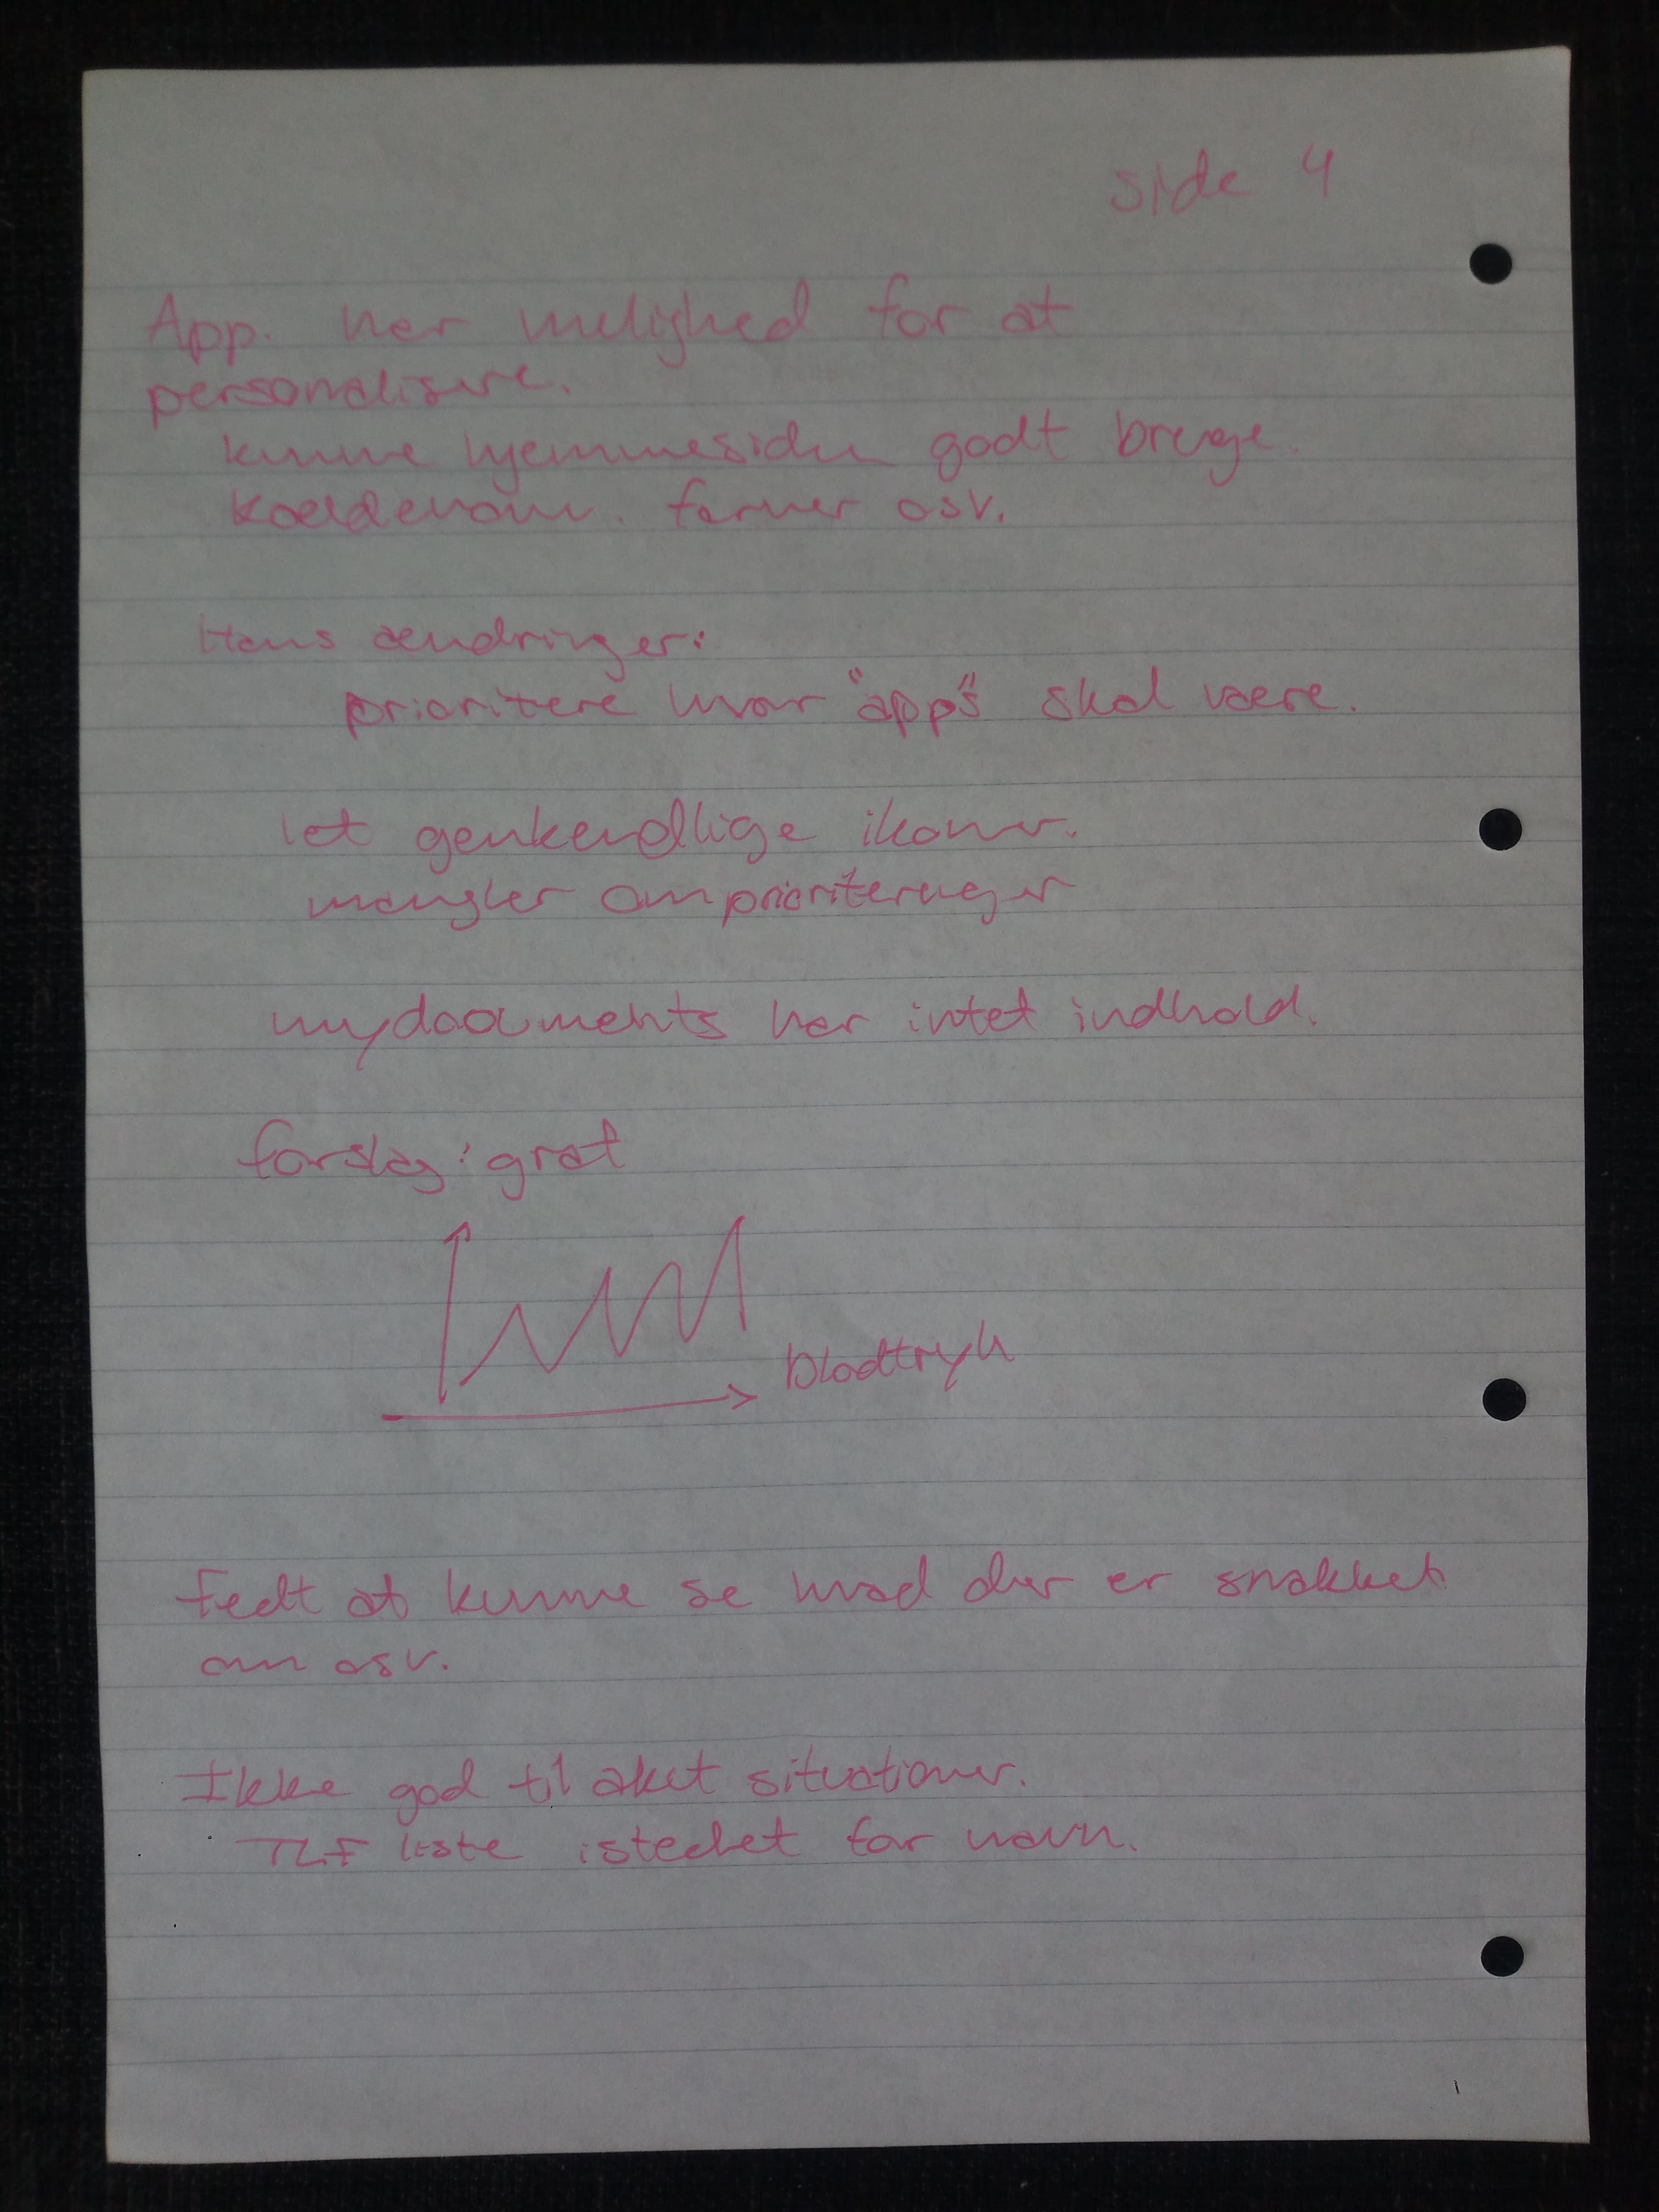 side 4
App. har mulighed for at
personalisere.
kunne hjemmesiden godt bruge.
kaeldenavn. farver osv.
Hans aendringer:
prioritere hvor "apps" skal vaere.
let genkendlige ikoner.
mangler omprioriteringer
mydocuments har intet indhold.
forslag: graf
blodtryk
Fedt at kunne se hvad der er snakket
om osv.
Ikke god til akut situationer.
TLF liste istedet for navn.